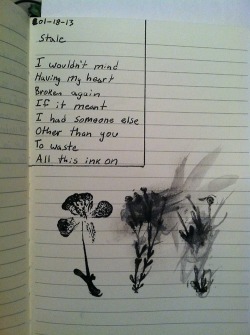 01-18-13
Stale
I wouldn't mind
Having my heart
Broken again
If it meant
I had someone else
Other than you
To waste
All this ink on